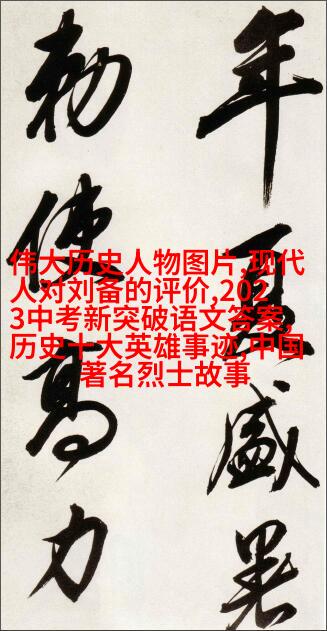 年夏盛暑
勅使高力
伟大历史人物图片,现代
人对刘备的评价,202
3中考新突破语文答案,
历史十大英雄事迹,中国
著名烈士故事